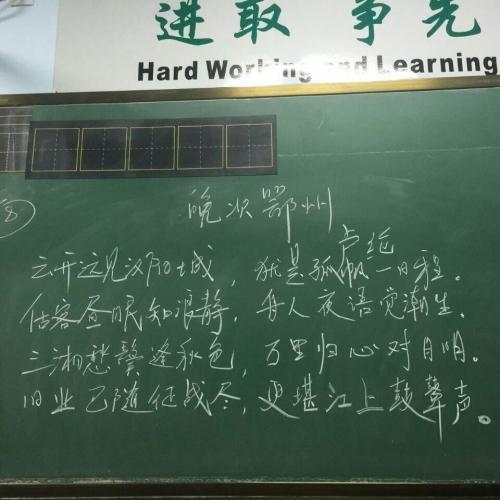 进取 争先
Hard Working and Learning
8
晚次鄂州
卢纶
云开远见汉阳城，犹是孤帆一日程。
估客昼眠知浪静，舟人夜语觉潮生。
三湘愁鬓逢秋色，万里归心对月明。
旧业已随征战尽，更堪江上鼓鼙声。